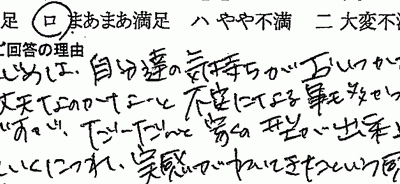 足 ロ まあまあ満足 ハ やや不満 ニ 大変不
ご回答の理由
じめは、自分達の気持ちが
丈夫なのかなーと 不安になる事も多か
ですが、だんだんと 家の 型が 出来上
ていくにつれ、実感がわいてきたという感